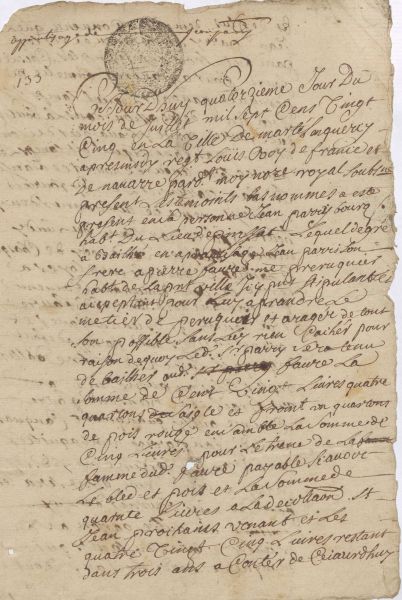 apprentissage de Jean parry
133
Ce Jourd'huy quatorzieme Jour Du
mois de Juillet mil sept Cens Vingt
Cinq en la Ville de martel en quercy
apres midy regt Louis Roy de france et
De navarre par dt moy nore royal soubne
present les temoints bas nommes a este
present en sa personne Jean parry bourg
habt Du Lieu de Lequel de gre
a baillé en apantissage Jean parry son
frere a pierre faure me perruquier
habt de la pnt Ville Icy pnt stipulant et
acceptant pour Luy aprandre Le
metier de peruquier et
son possible sans luy rien Cacher pour
raison de quoy Led Sr parry sera tenu
de bailher aud faure La
somme de Cent Vingt Livres quatre
quartons et un quarton
de pois rouge en samble La somme de
Cinq Livres pour Letrene de La
famme dud faure payable scavoir
Le bled et pois et La somme de
quarante Livres a La decollaon st
Jean prochains venant et Les
quatre Vingt Cinq Livres restant
dans trois ans a Conter de Cejourdhuy